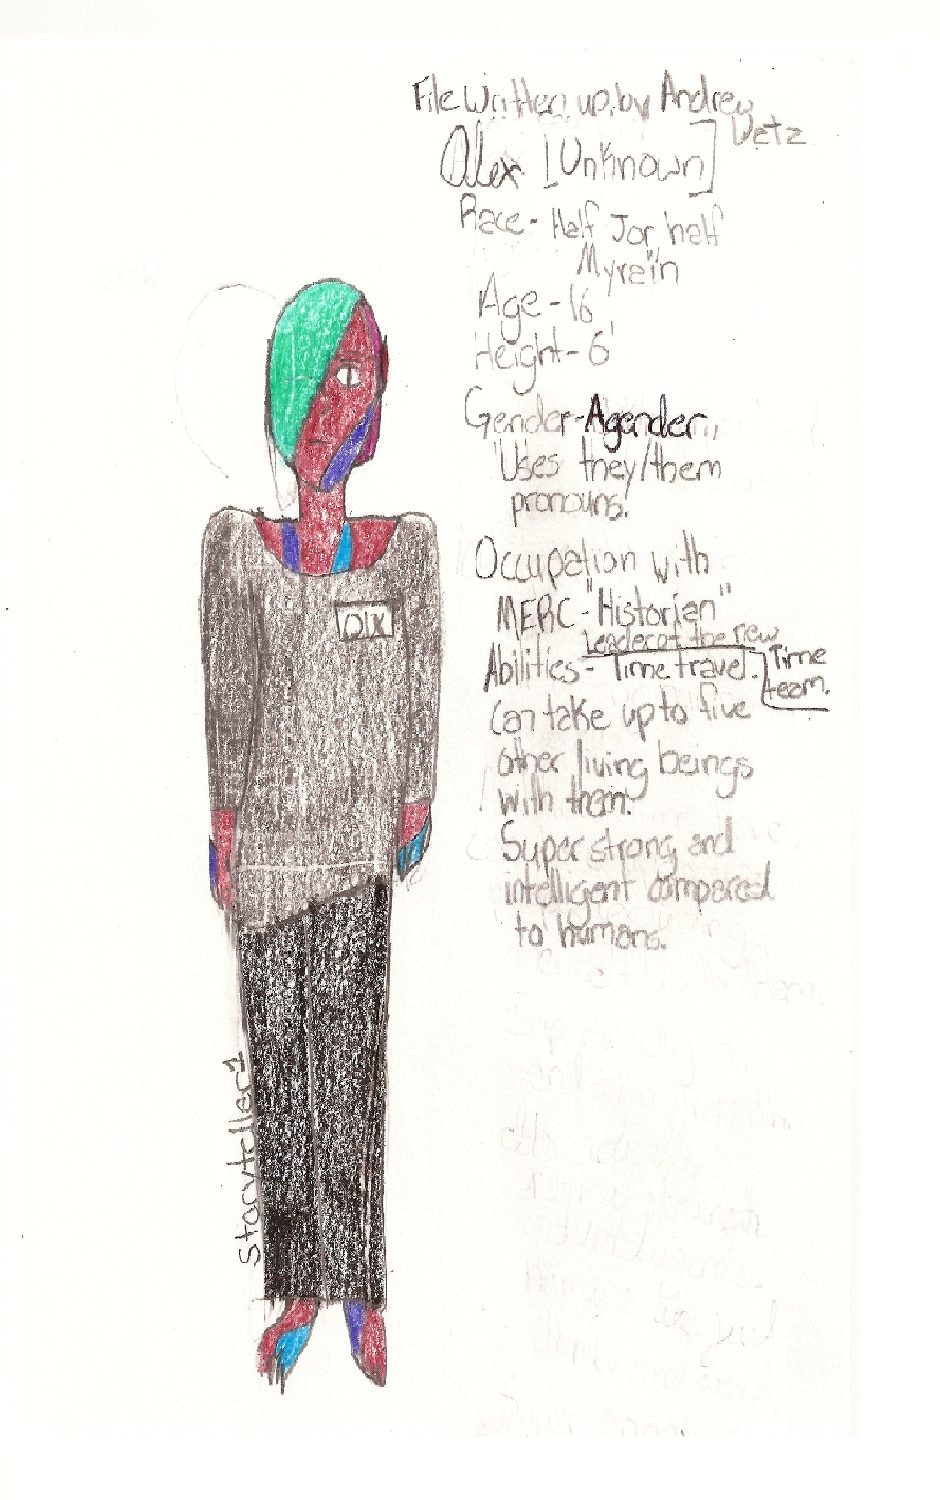 File Written up by Andrew
Detz
Alex [Unknown]
Race- Half Jor, half
Myrein
Age-16
Height-6'
Gender-Agender,
Uses they/them
pronouns.
Occupation with
MERC-"Historian"
Leader of the new
Time
team.
Abilities- Time travel.
Can take up to five
other living beings
with them.
Super strong and
intelligent compared
to humans.
DIX
Storyteller1